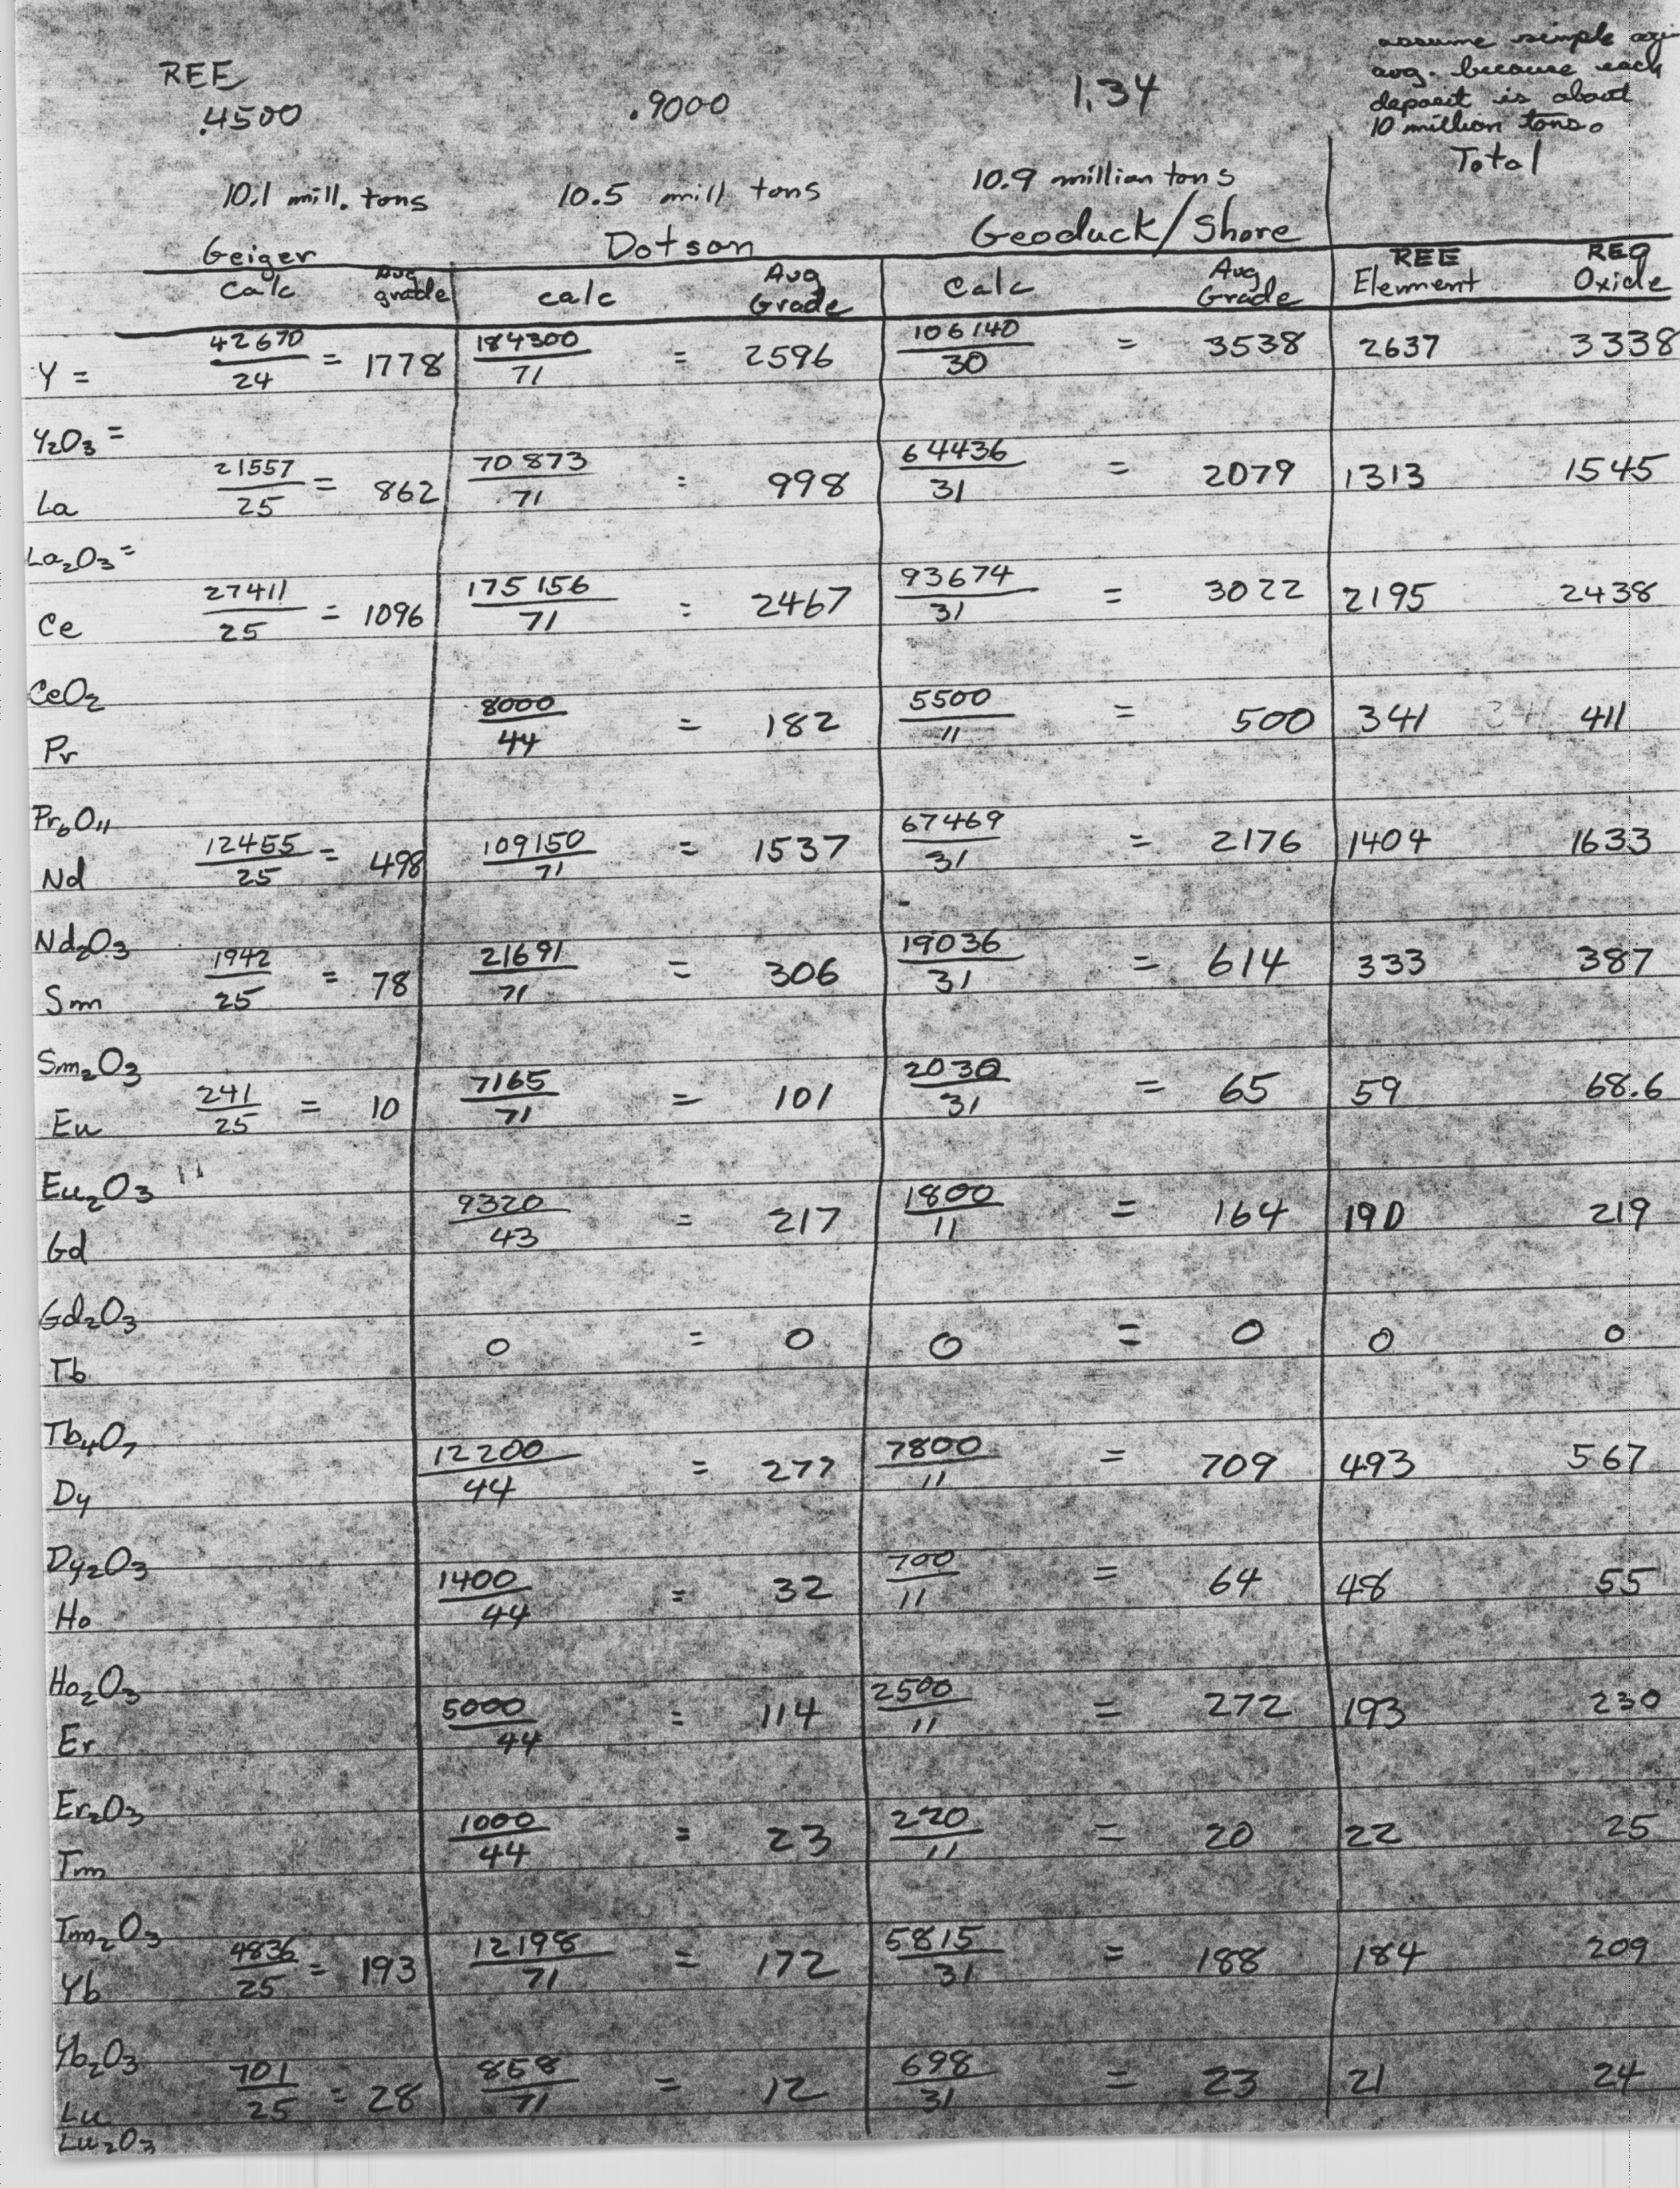 REE
.4500 .9000 1.34
assume simple
avg. because each
deposit is about
10 million tons.
Total
10.1 mill. tons 10.5 mill tons 10.9 million tons
Geiger Dotson Geoduck/Shore
Calc Avg grade calc Avg Grade Calc Avg Grade REE Element REO Oxide
Y = 42670/24 = 1778 184300/71 = 2596 106140/30 = 3538 2637 3338
Y2O3 =
La 21557/25 = 862 70873/71 = 998 64436/31 = 2079 1313 1545
La2O3 =
Ce 27411/25 = 1096 175156/71 = 2467 93674/31 = 3022 2195 2438
CeO2
Pr 8000/44 = 182 5500/11 = 500 341 411
Pr6O11
Nd 12455/25 = 498 109150/71 = 1537 67469/31 = 2176 1404 1633
Nd2O3
Sm 1942/25 = 78 21691/71 = 306 19036/31 = 614 333 387
Sm2O3
Eu 241/25 = 10 7165/71 = 101 2030/31 = 65 59 68.6
Eu2O3
Gd 9320/43 = 217 1800/11 = 164 190 219
Gd2O3
Tb 0 = 0 0 = 0 0 0
Tb4O7
Dy 12200/44 = 277 7800/11 = 709 493 567
Dy2O3
Ho 1400/44 = 32 700/11 = 64 48 55
Ho2O3
Er 5000/44 = 114 2500/11 = 272 193 230
Er2O3
Tm 1000/44 = 23 220/11 = 20 22 25
Tm2O3
Yb 4836/25 = 193 12198/71 = 172 5815/31 = 188 184 209
Yb2O3
Lu 701/25 = 28 858/71 = 12 698/31 = 23 21 24
Lu2O3